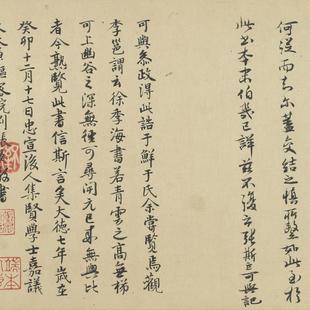 何從而知尔蓋交結之慎所鑒如此至於
此書本末伯幾已詳茲不復云張斯立可與記
可與參政得此誥于鮮于氏余嘗覽焉觀
李邕謂云徐季海書若青雲之高無梯
可上幽谷之深無徑可尋開元已來無與比
者今熟覽此書信斯言矣大德七年歲在
癸卯十二月十七日忠宣後人集賢學士嘉議